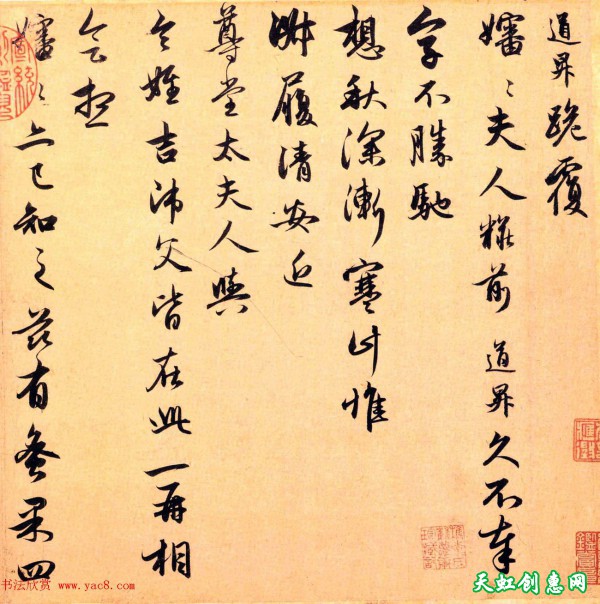 道昇跪覆
嬸〻夫人粧前道昇久不奉
字不勝馳
想秋深漸寒計惟
淑履清安近
尊堂太夫人與
令姪吉師父皆在此一再相
會想
嬸〻亦已知之茲有蜜果四
书法欣赏 www.yac8.com
天虹创惠网